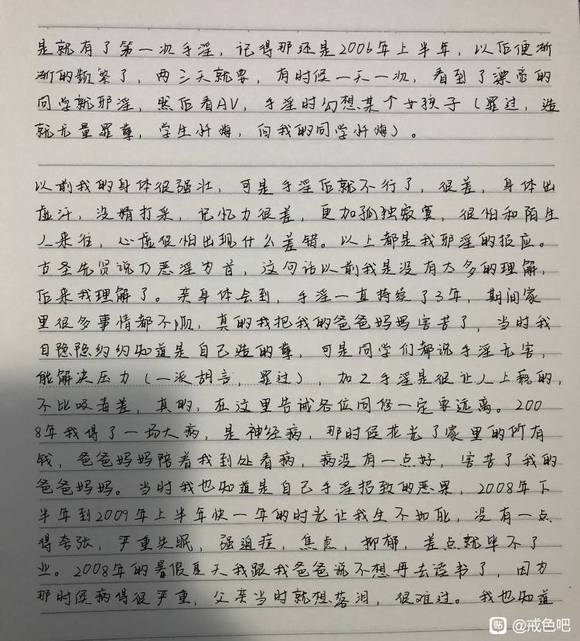 是就有了第一次手淫，记得那还是2006年上半年，以后便渐
渐的频繁了，两三天就要，有时候一天一次，看到了漂亮的
同学就邪淫，然后看AV，手淫时幻想某个女孩子（罪过，造
就无量罪孽，学生忏悔，向我的同学忏悔）。
以前我的身体很强壮，可是手淫后就不行了，很差，身体出
虚汗，没精打采，记忆力很差，更加孤独寂寞，很怕和陌生
人来往，心虚很怕出现什么差错。以上都是我邪淫的报应。
古圣先贤说万恶淫为首，这句话以前我是没有太多的理解，
后来我理解了。亲身体会到，手淫一直持续了3年，期间家
里很多事情都不顺，真的我把我的爸爸妈妈害苦了，当时我
自隐隐约约知道是自己造的孽，可是同学们都说手淫无害，
能解决压力（一派胡言，罪过），加之手淫是很让人上瘾的，
不比吸毒差，真的，在这里告诫各位同修一定要远离。200
8年我得了一场大病，是神经病，那时候花光了家里的所有
钱，爸爸妈妈陪着我到处看病，病没有一点好，害苦了我的
爸爸妈妈。当时我也知道是自己手淫招致的恶果，2008年下
半年到2009年上半年快一年的时光让我生不如死，没有一点
得夸张，严重失眠，强迫症，焦虑，抑郁，差点就毕不了
业。2008年的暑假夏天我跟我爸爸说不想再去读书了，因为
那时候病得很严重，父亲当时就想落泪，很难过。我也知道
贴 @戒色吧